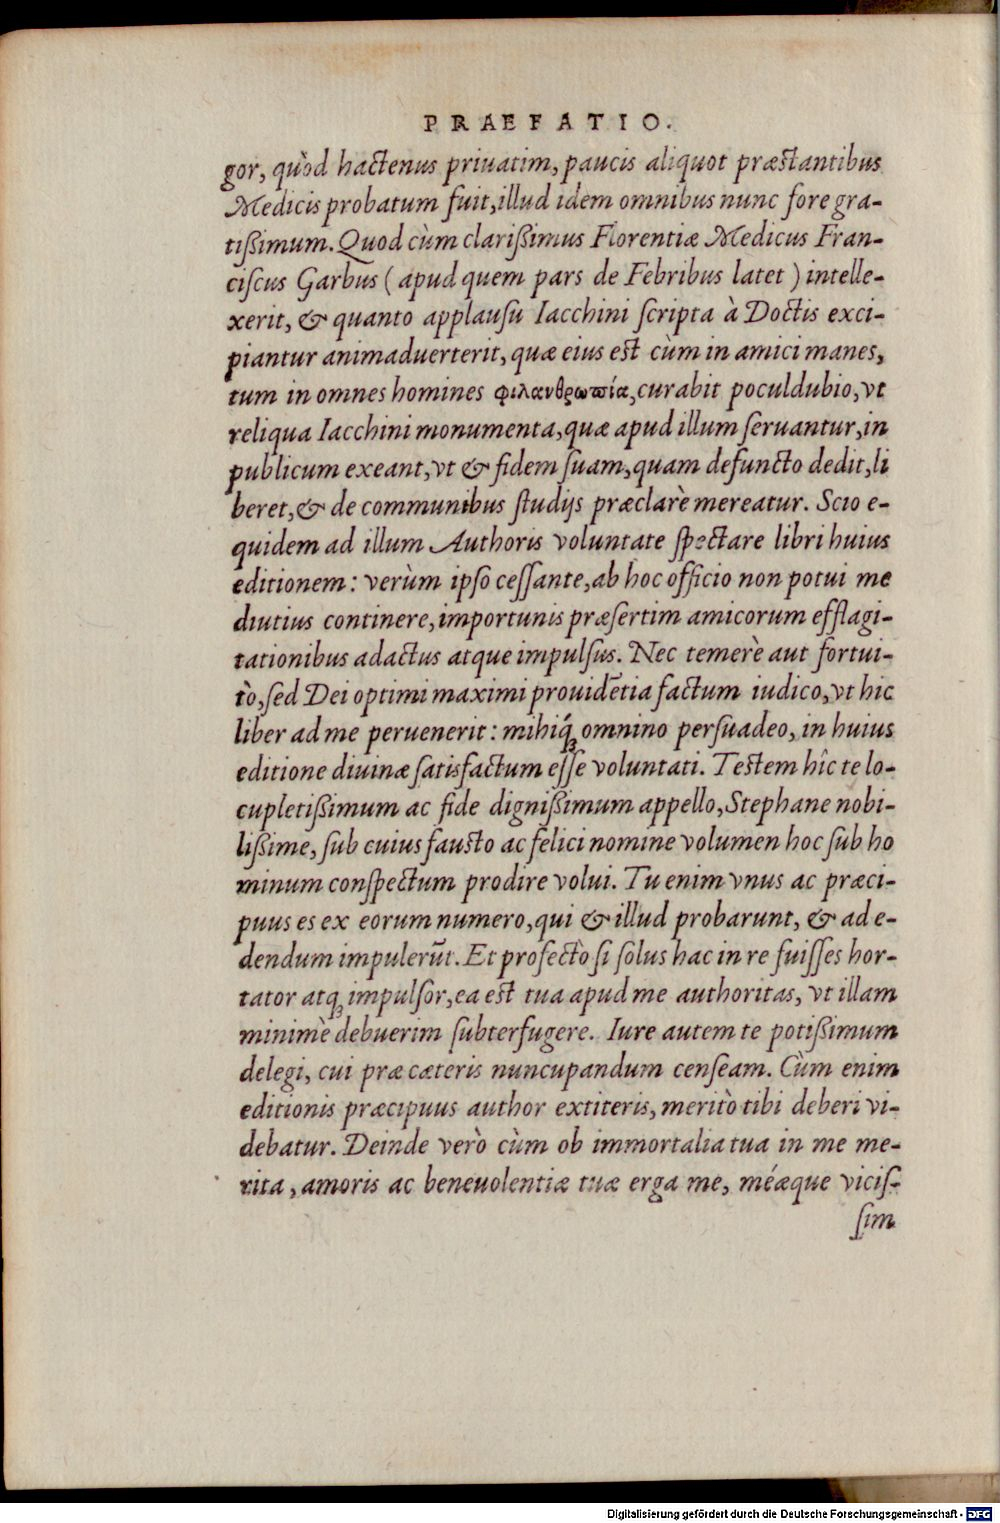 PRAEFATIO.
gor, quòd hactenus priuatim, paucis aliquot præstantibus
Medicis probatum fuit, illud idem omnibus nunc fore gra-
tißimum. Quod cùm clarißimus Florentiæ Medicus Fran-
ciſcus Garbus (apud quem pars de Febribus latet) intelle-
xerit, & quanto applauſu Iacchini ſcripta à Doctis exci-
piantur animaduerterit, quæ eius est cùm in amici manes,
tum in omnes homines φιλανθρωπία, curabit poculdubio, vt
reliqua Iacchini monumenta, quæ apud illum ſeruantur, in
publicum exeant, vt & fidem ſuam, quam defuncto dedit, li
beret, & de communibus ſtudijs præclarè mereatur. Scio e-
quidem ad illum Authoris voluntate ſpectare libri huius
editionem: verùm ipſo ceſſante, ab hoc officio non potui me
diutius continere, importunis præſertim amicorum efflagi-
tationibus adactus atque impulſus. Nec temerè aut fortui-
tò, ſed Dei optimi maximi prouidẽtia factum iudico, vt hic
liber ad me peruenerit: mihiq́ꝫ omnino perſuadeo, in huius
editione diuinæ ſatisfactum eſſe voluntati. Testem hîc te lo-
cupletißimum ac fide dignißimum appello, Stephane nobi-
lißime, ſub cuius fausto ac felici nomine volumen hoc ſub ho
minum conſpectum prodire volui. Tu enim vnus ac præci-
puus es ex eorum numero, qui & illud probarunt, & ad e-
dendum impulerũt. Et profectò ſi ſolus hac in re fuiſſes hor-
tator atqꝫ impulſor, ea est tua apud me authoritas, vt illam
minimè debuerim ſubterfugere. Iure autem te potißimum
delegi, cui præ cæteris nuncupandum cenſeam. Cùm enim
editionis præcipuus author extiteris, meritò tibi deberi vi-
debatur. Deinde verò cùm ob immortalia tua in me me-
rita, amoris ac beneuolentiæ tuæ erga me, meǽque viciſ-
ſim
Digitalisierung gefördert durch die Deutsche Forschungsgemeinschaft - DFG